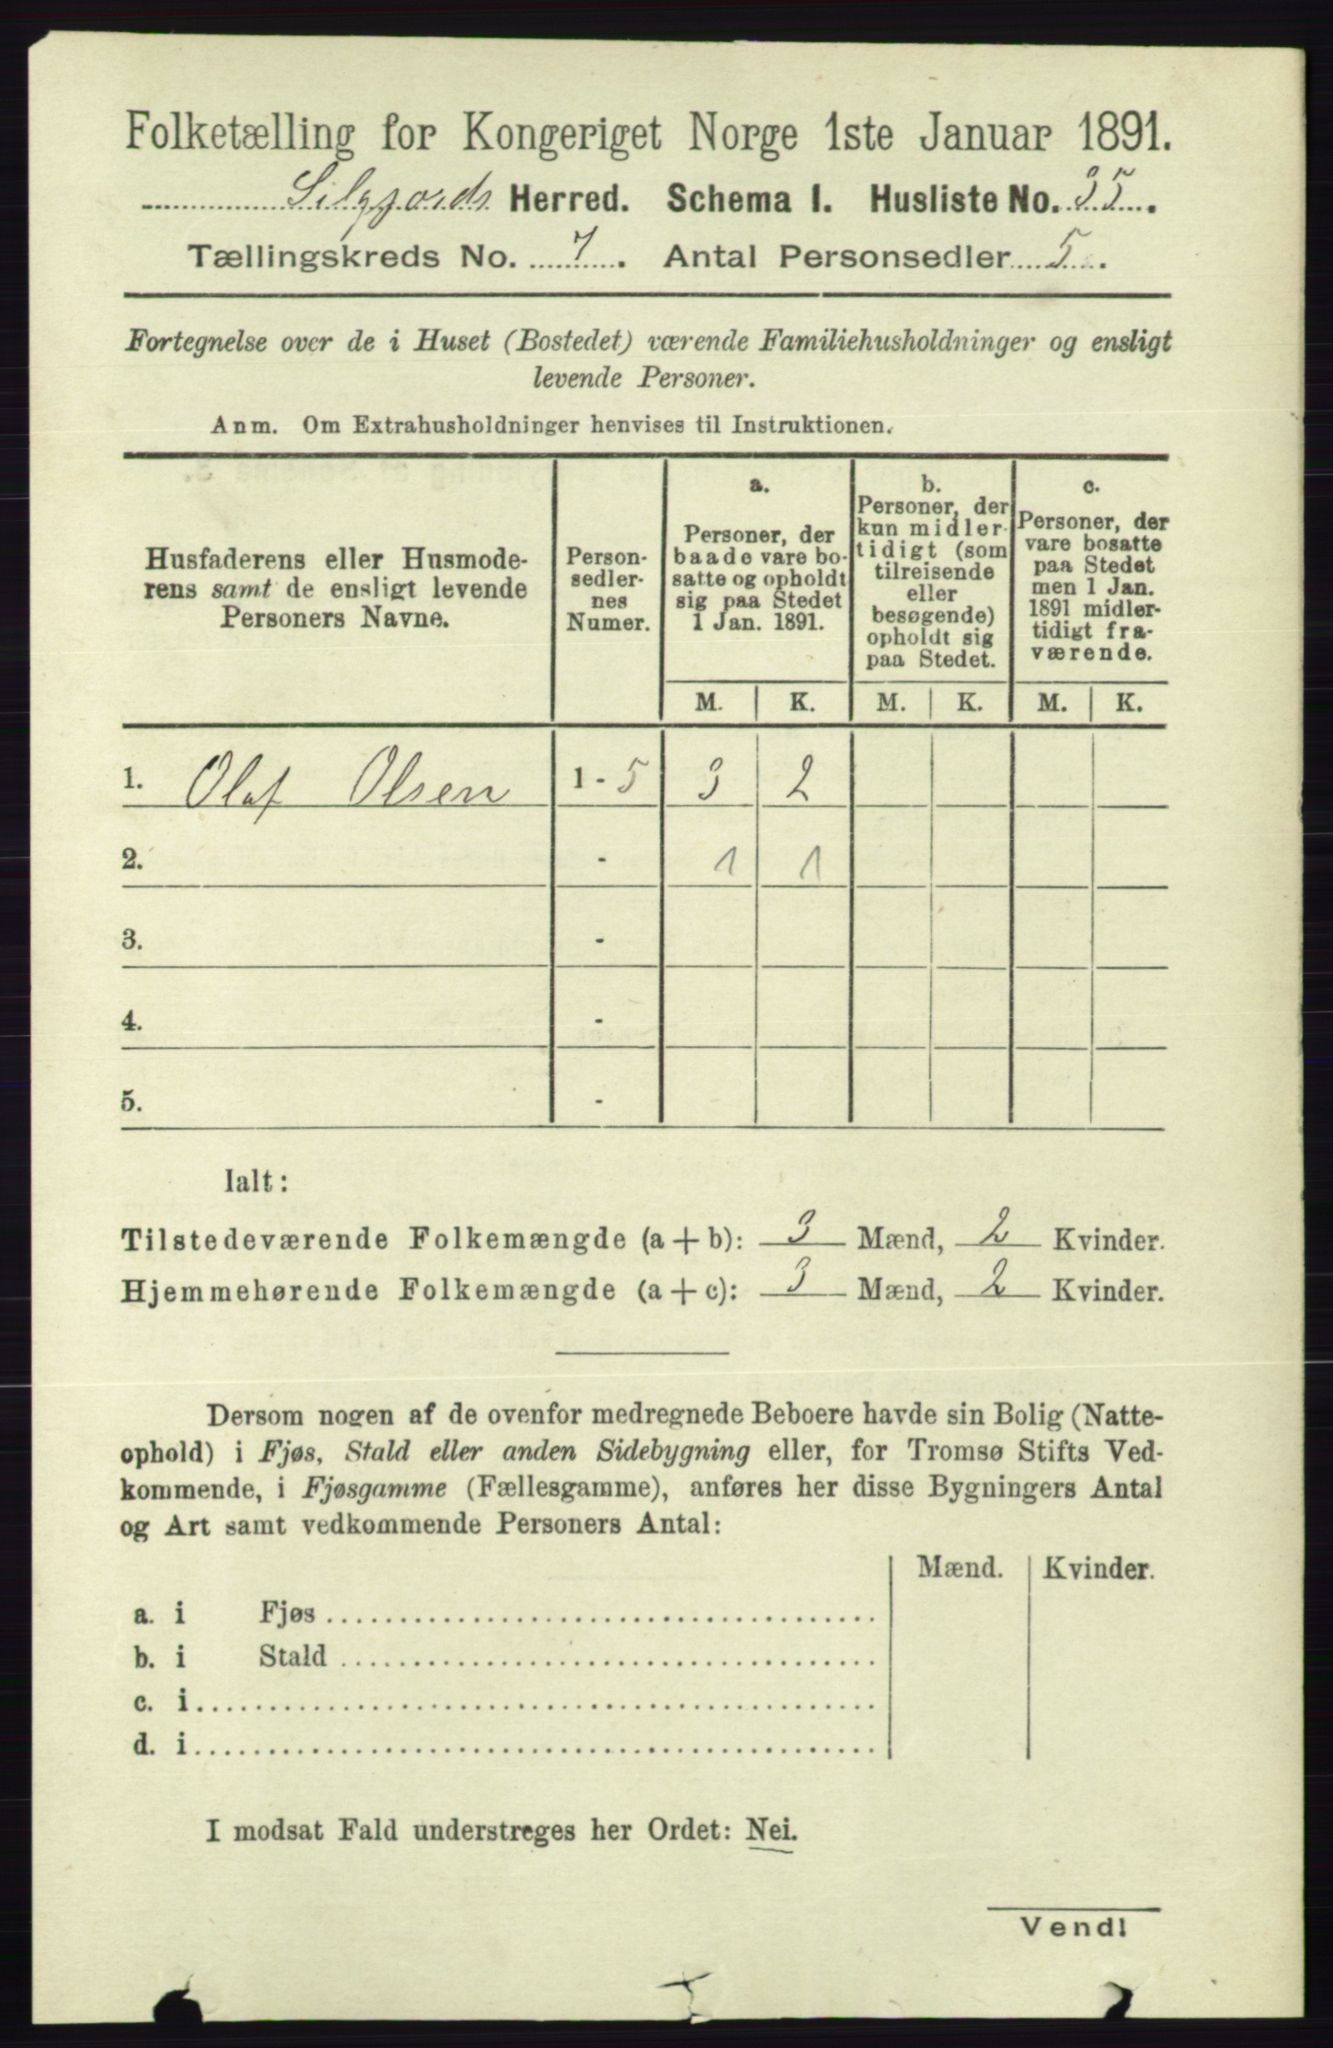 Folketælling for Kongeriget Norge 1ste Januar 1891.
Silgjords Herred. Schema I. Husliste No. 35.
Tællingskreds No. 7. Antal Personsedler 5.
Fortegnelse over de i Huset (Bostedet) værende Familiehusholdninger og ensligt
levende Personer.
Anm. Om Extrahusholdninger henvises til Instruktionen.
Husfaderens eller Husmode-
rens samt de ensligt levende
Personers Navne.
Person-
sedler-
nes
Numer.
a.
Personer, der
baade vare bo-
satte og opholdt
sig paa Stedet
1 Jan. 1891.
b.
Personer, der
kun midler-
tidigt (som
tilreisende
eller
besøgende)
opholdt sig
paa Stedet.
c.
Personer, der
vare bosatte
paa Stedet
men 1 Jan.
1891 midler-
tidigt fra-
værende.
M. K. M. K. M. K.
1. Olaf Olsen 1 - 5 3 2
2. - 1 1
3. -
4. -
5. -
Ialt:
Tilstedeværende Folkemængde (a + b): 3 Mænd, 2 Kvinder.
Hjemmehørende Folkemængde (a + c): 3 Mænd, 2 Kvinder.
Dersom nogen af de ovenfor medregnede Beboere havde sin Bolig (Natte-
ophold) i Fjøs, Stald eller anden Sidebygning eller, for Tromsø Stifts Ved-
kommende, i Fjøsgamme (Fællesgamme), anføres her disse Bygningers Antal
og Art samt vedkommende Personers Antal:
Mænd. Kvinder.
a. i Fjøs
b. i Stald
c. i
d. i
I modsat Fald understreges her Ordet: Nei.
Vend!